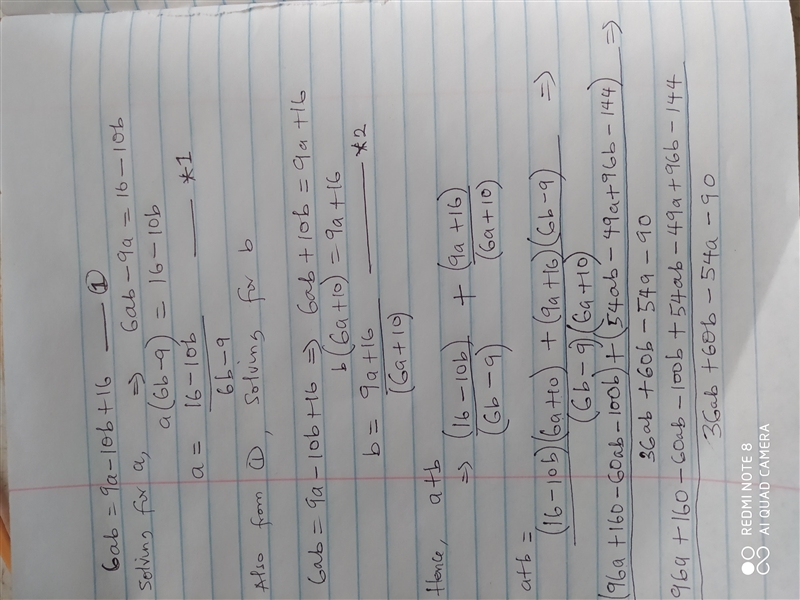 6ab = 9a-10b+16 —— ①
Solving for a, ⇒ 6ab-9a = 16-10b
a(6b-9) = 16-10b
a = 16-10b —— *1
6b-9
Also from ①, solving for b
6ab = 9a-10b+16 ⇒ 6ab+10b = 9a+16
b(6a+10) = 9a+16
b = 9a+16 —— *2
(6a+10)
Hence, a+b
⇒ (16-10b) + (9a+16)
(6b-9) (6a+10)
a+b =
(16-10b)(6a+10) + (9a+16)(6b-9) ⇒
(6b-9)(6a+10)
(96a+160-60ab-100b)+(54ab-49a+96b-144) ⇒
36ab+60b-54a-90
96a+160-60ab-100b+54ab-49a+96b-144
36ab+60b-54a-90
REDMI NOTE 8
AI QUAD CAMERA